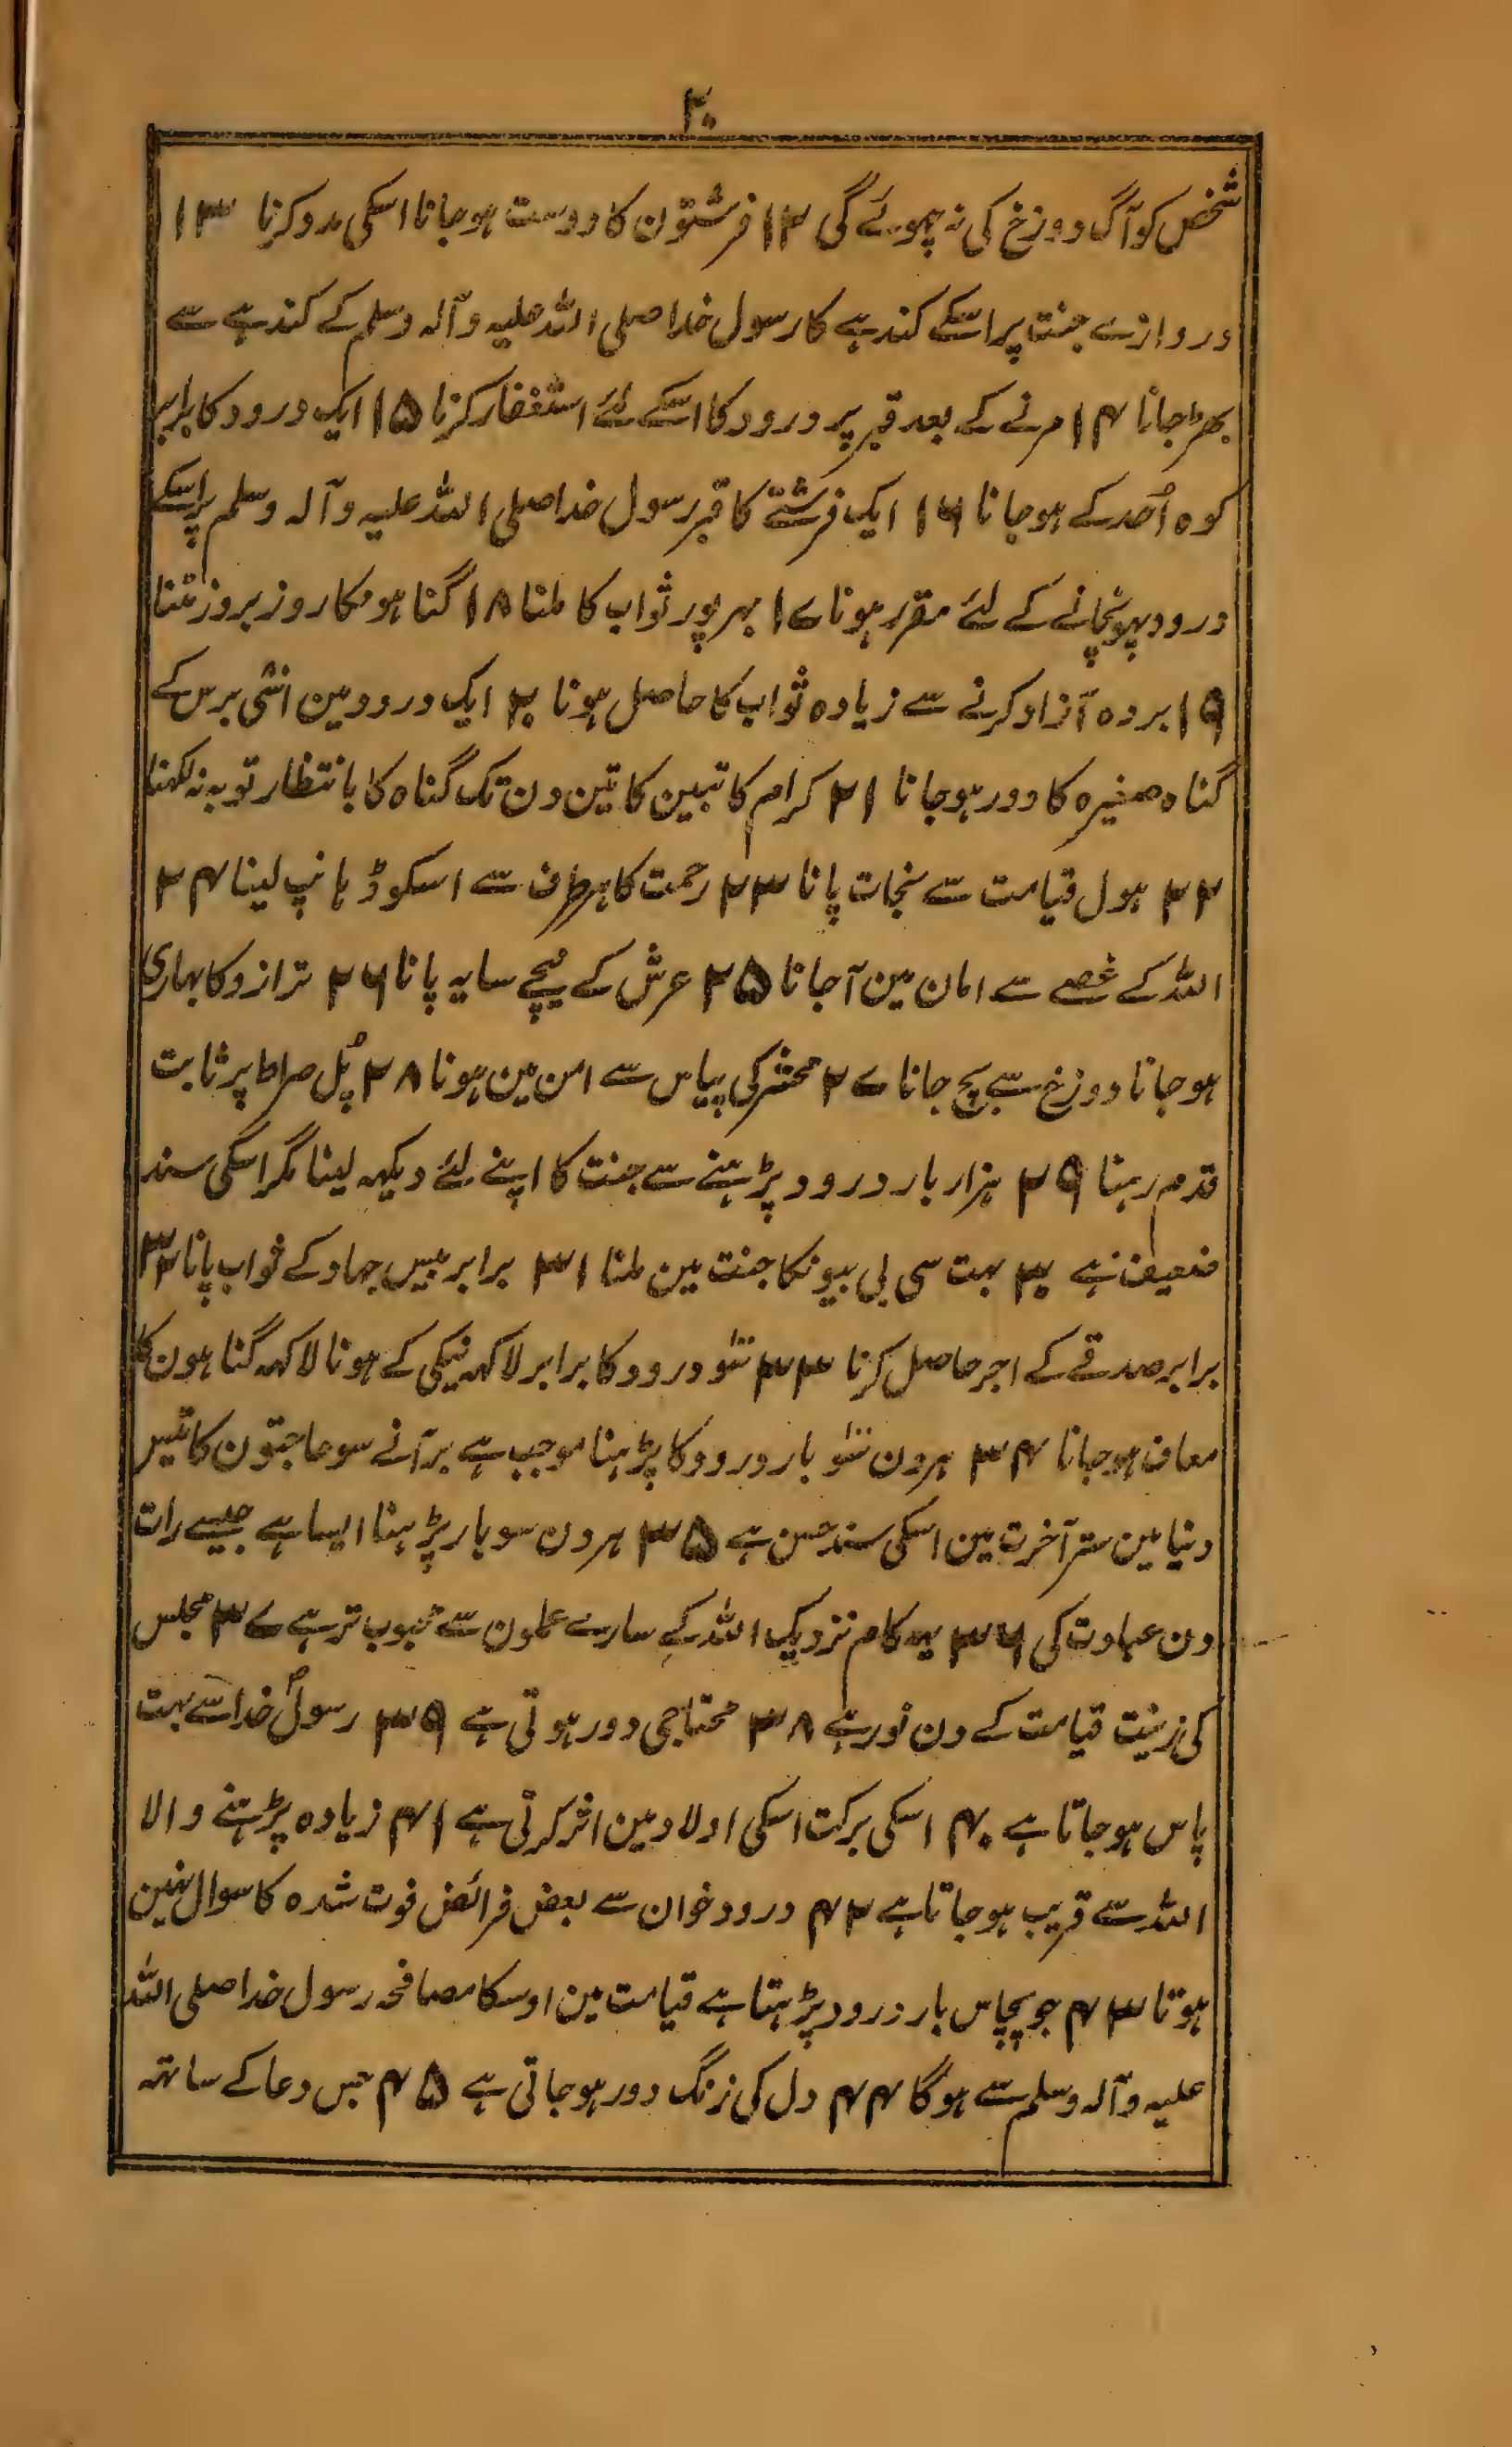 ۲۰
شخص کو آگ دوزخ کی نہ چھوئے گی ۱۲ فرشتون کا دوست ہو جانا اسکی مدد کرنا ۱۳
دروازے جنت پر اسکے کندہے کا رسول خدا صلی اللہ علیہ وآلہ وسلم کے کندہے سے
بھڑ جانا ۱۴ مرنے کے بعد قبر پر درود کا اسکے لئے استغفار کرنا ۱۵ ایک درود کا برابر
کوہ اُحد کے ہو جانا ۱۶ ایک فرشتے کا قبر رسول خدا صلی اللہ علیہ وآلہ وسلم پر اسکے
درود پہونچانے کے لئے مقرر ہونا ۱۷ بہرپور ثواب کا ملنا ۱۸ گناہونکا روز بروز مٹنا
۱۹ بردہ آزاد کرنے سے زیادہ ثواب کا حاصل ہونا ۲۰ ایک درود مین اسّی برس کے
گناہ صغیرہ کا دور ہو جانا ۲۱ کرام کاتبین کا تین دن تک گناہ کا بانتظار توبہ نہ لکہنا
۲۲ ہول قیامت سے نجات پانا ۲۳ رحمت کا ہر طرف سے اسکو ڈہانپ لینا ۲۴
اللہ کے غصے سے امان مین آجانا ۲۵ عرش کے نیچے سایہ پانا ۲۶ ترازو کا بہاری
ہو جانا دوزخ سے بچ جانا ۲۷ محشر کی پیاس سے امن مین ہونا ۲۸ پُل صراط پر ثابت
قدم رہنا ۲۹ ہزار بار درود پڑہنے سے جنت کا اپنے لئے دیکہہ لینا مگر اسکی سند
ضعیف ہے ۳۰ بہت سی بی بیونکا جنت مین ملنا ۳۱ برابر بیس جہاد کے ثواب پانا ۳۲
برابر صدقے کے اجر حاصل کرنا ۳۳ سو درود کا برابر لاکہہ نیکی کے ہونا لاکہہ گناہون کا
معاف ہو جانا ۳۴ ہر دن سو بار درود کا پڑہنا موجب ہے برآنے سو حاجتون کا تیس
دنیا مین ستر آخرت مین اسکی سند حسن ہے ۳۵ ہر دن سو بار پڑہنا ایسا ہے جیسے رات
دن عبادت کی ۳۶ یہ کام نزدیک اللہ کے سارے عملون سے محبوب تر ہے ۳۷ مجلس
کی زینت قیامت کے دن نور ہے ۳۸ محتاجی دور ہوتی ہے ۳۹ رسولؐ خدا سے بہت
پاس ہو جاتا ہے ۴۰ اسکی برکت اسکی اولاد مین اثر کرتی ہے ۴۱ زیادہ پڑہنے والا
اللہ سے قریب ہو جاتا ہے ۴۲ درود خوان سے بعض فرائض فوت شدہ کا سوال نہین
ہوتا ۴۳ جو پچاس بار درود پڑہتا ہے قیامت مین اوسکا مصافحہ رسول خدا صلی اللہ
علیہ وآلہ وسلم سے ہوگا ۴۴ دل کی زنگ دور ہو جاتی ہے ۴۵ جس دعا کے ساتہہ